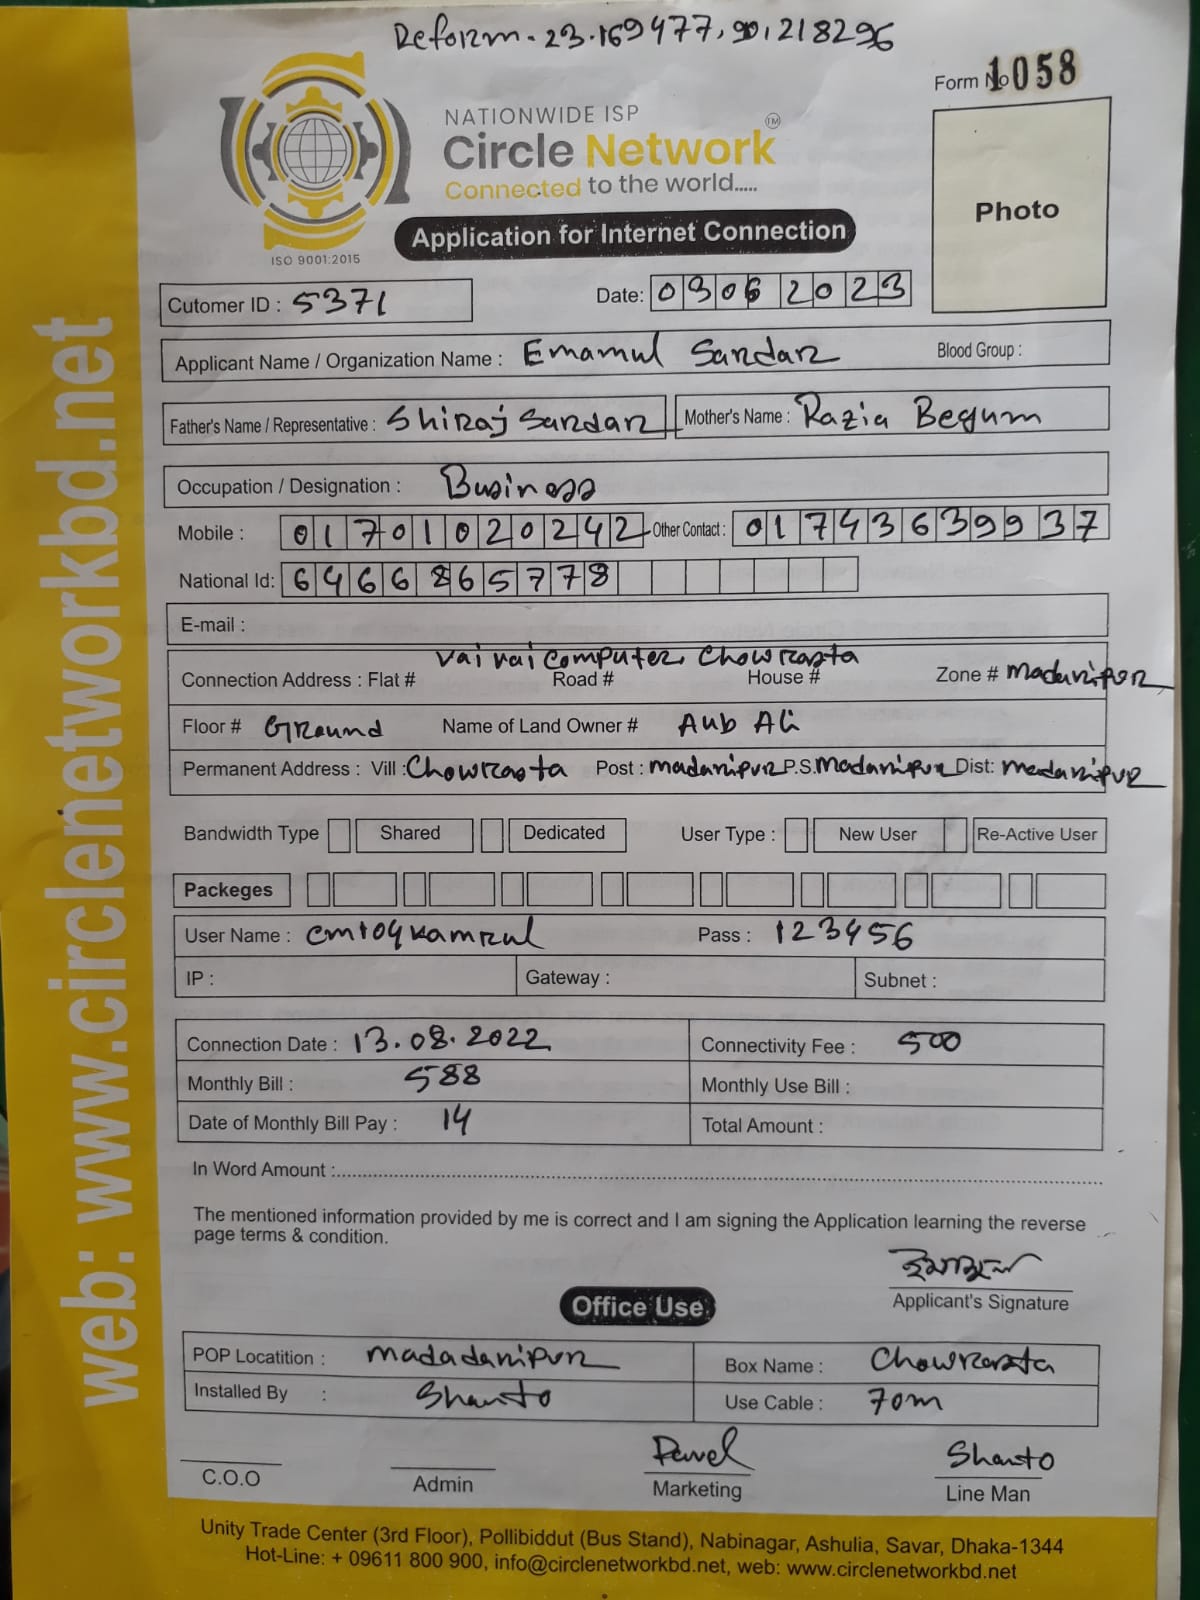 Reform - 23.169477, 90.218296
Form No 1058
NATIONWIDE ISP
Circle Network TM
Connected to the world.....
Photo
Application for Internet Connection
ISO 9001:2015
Cutomer ID : 5371 Date: 03062023
Applicant Name / Organization Name : Emamul Sardar Blood Group :
Father's Name / Representative : Shiraj Sardar Mother's Name : Razia Begum
Occupation / Designation : Business
Mobile : 01701020242 Other Contact : 01743639937
National Id: 6466865778
E-mail :
Vai vai computer, Chowrasta
Connection Address : Flat # Road # House # Zone # Madaripur
Floor # Ground Name of Land Owner # Aub Ali
Permanent Address : Vill : Chowrasta Post : Madaripur P.S. Madaripur Dist: Madaripur
Bandwidth Type Shared Dedicated User Type : New User Re-Active User
Packeges
User Name : cm104kamrul Pass : 123456
IP : Gateway : Subnet :
Connection Date : 13.08.2022 Connectivity Fee : 500
Monthly Bill : 588 Monthly Use Bill :
Date of Monthly Bill Pay : 14 Total Amount :
In Word Amount :
The mentioned information provided by me is correct and I am signing the Application learning the reverse
page terms & condition.
ইমামুল
Applicant's Signature
Office Use
POP Locatition : Madadaripur Box Name : Chowrasta
Installed By : Shanto Use Cable : 70m
Pavel Shanto
C.O.O Admin Marketing Line Man
Unity Trade Center (3rd Floor), Pollibiddut (Bus Stand), Nabinagar, Ashulia, Savar, Dhaka-1344
Hot-Line: + 09611 800 900, info@circlenetworkbd.net, web: www.circlenetworkbd.net
web: www.circlenetworkbd.net